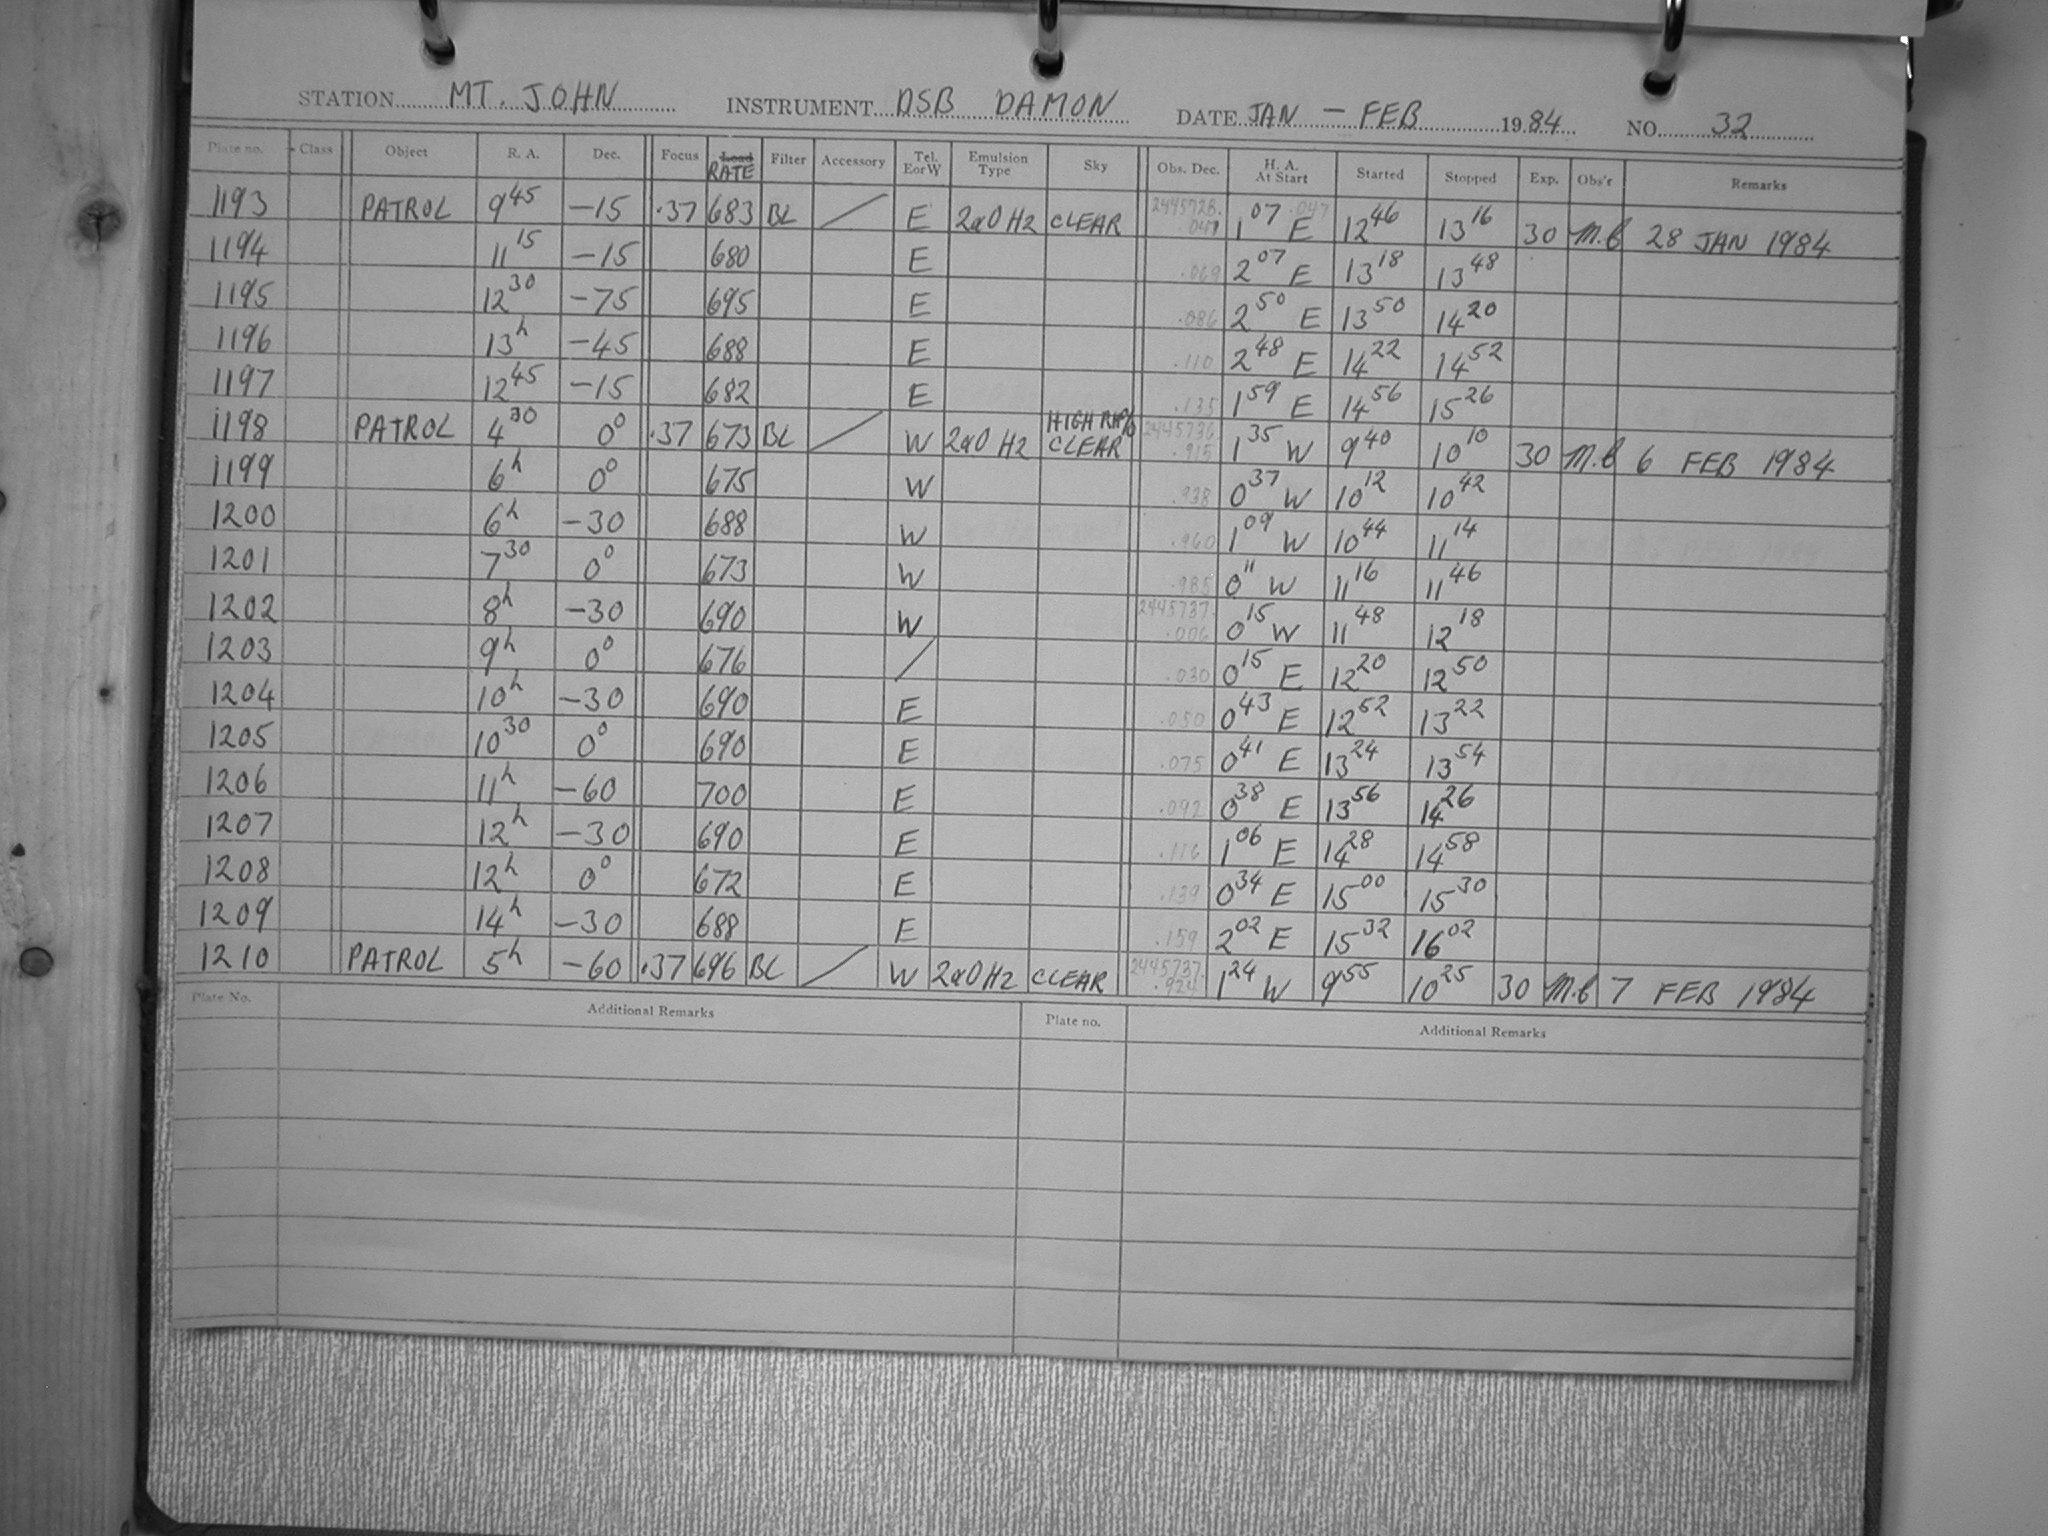 STATION MT. JOHN INSTRUMENT DSB DAMON DATE JAN – FEB 1984 NO. 32
Plate no. Class Object R. A. Dec. Focus Load RATE Filter Accessory Tel. E or W Emulsion Type Sky Obs. Dec. H. A. At Start Started Stopped Exp. Obs'r Remarks
1193 PATROL 9 45 –15 .37 683 BL / E 2aO H2 CLEAR 2445728. .047 1 07 .047 E 12 46 13 16 30 M.C 28 JAN 1984
1194 11 15 –15 680 E .069 2 07 E 13 18 13 48
1195 12 30 –75 695 E .086 2 50 E 13 50 14 20
1196 13h –45 688 E .110 2 48 E 14 22 14 52
1197 12 45 –15 682 E .135 1 59 E 14 56 15 26
1198 PATROL 4 30 0° .37 673 BL / W 2aO H2 HIGH RH% CLEAR 2445736. .915 1 35 W 9 40 10 10 30 M.C 6 FEB 1984
1199 6h 0° 675 W .938 0 37 W 10 12 10 42
1200 6h –30 688 W .960 1 09 W 10 44 11 14
1201 7 30 0° 673 W .985 0 11 W 11 16 11 46
1202 8h –30 690 W 2445737. .006 0 15 W 11 48 12 18
1203 9h 0° 676 / .030 0 15 E 12 20 12 50
1204 10h –30 690 E .050 0 43 E 12 52 13 22
1205 10 30 0° 690 E .075 0 41 E 13 24 13 54
1206 11h –60 700 E .092 0 38 E 13 56 14 26
1207 12h –30 690 E .116 1 06 E 14 28 14 58
1208 12h 0° 672 E .139 0 34 E 15 00 15 30
1209 14h –30 688 E .159 2 02 E 15 32 16 02
1210 PATROL 5h –60 .37 696 BL / W 2aO H2 CLEAR 2445737. .924 1 24 W 9 55 10 25 30 M.C 7 FEB 1984
Plate No. Additional Remarks Plate no. Additional Remarks